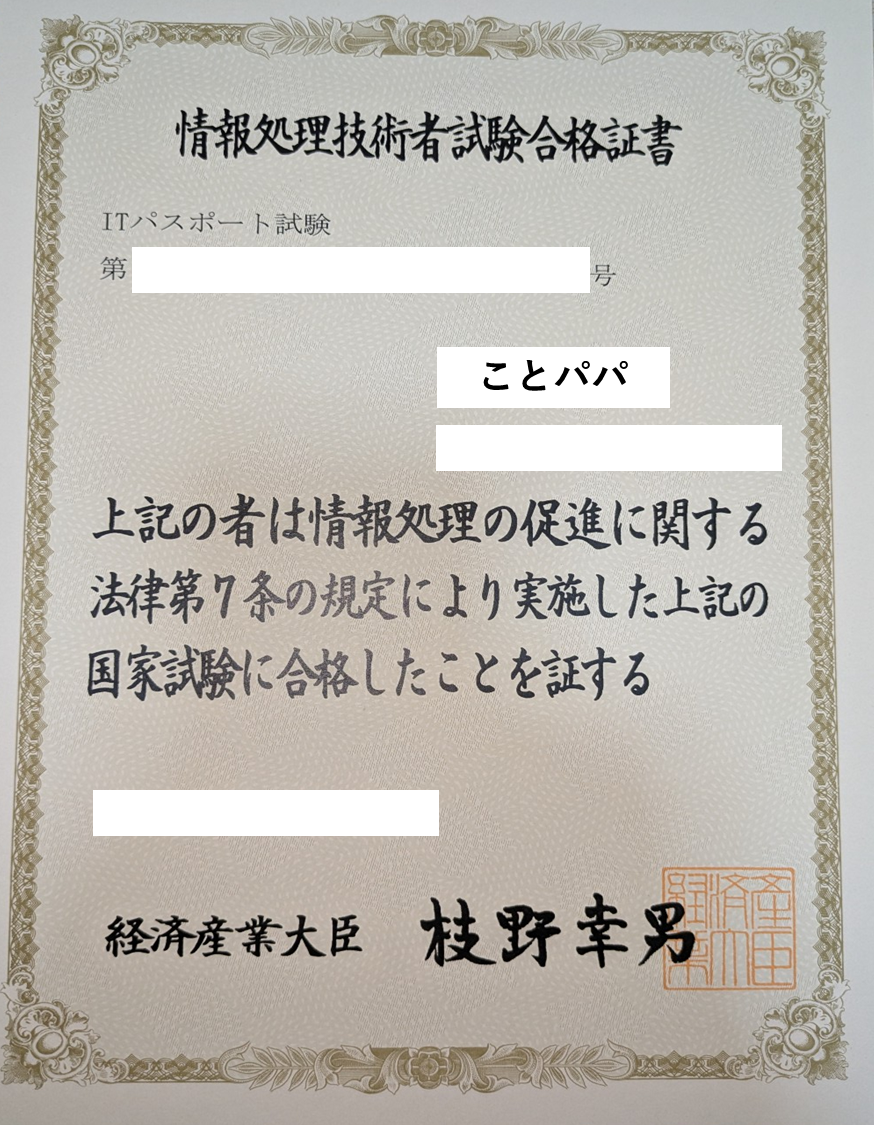 情報処理技術者試験合格証書
ITパスポート試験
第 号
ことパパ
上記の者は情報処理の促進に関する
法律第7条の規定により実施した上記の
国家試験に合格したことを証する
経済産業大臣 枝野幸男